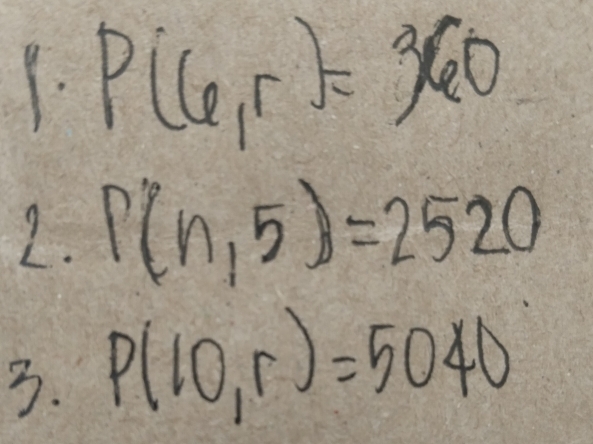 1. P(6,r)=360
2. P(n,5)=2520
3. P(10,r)=5040